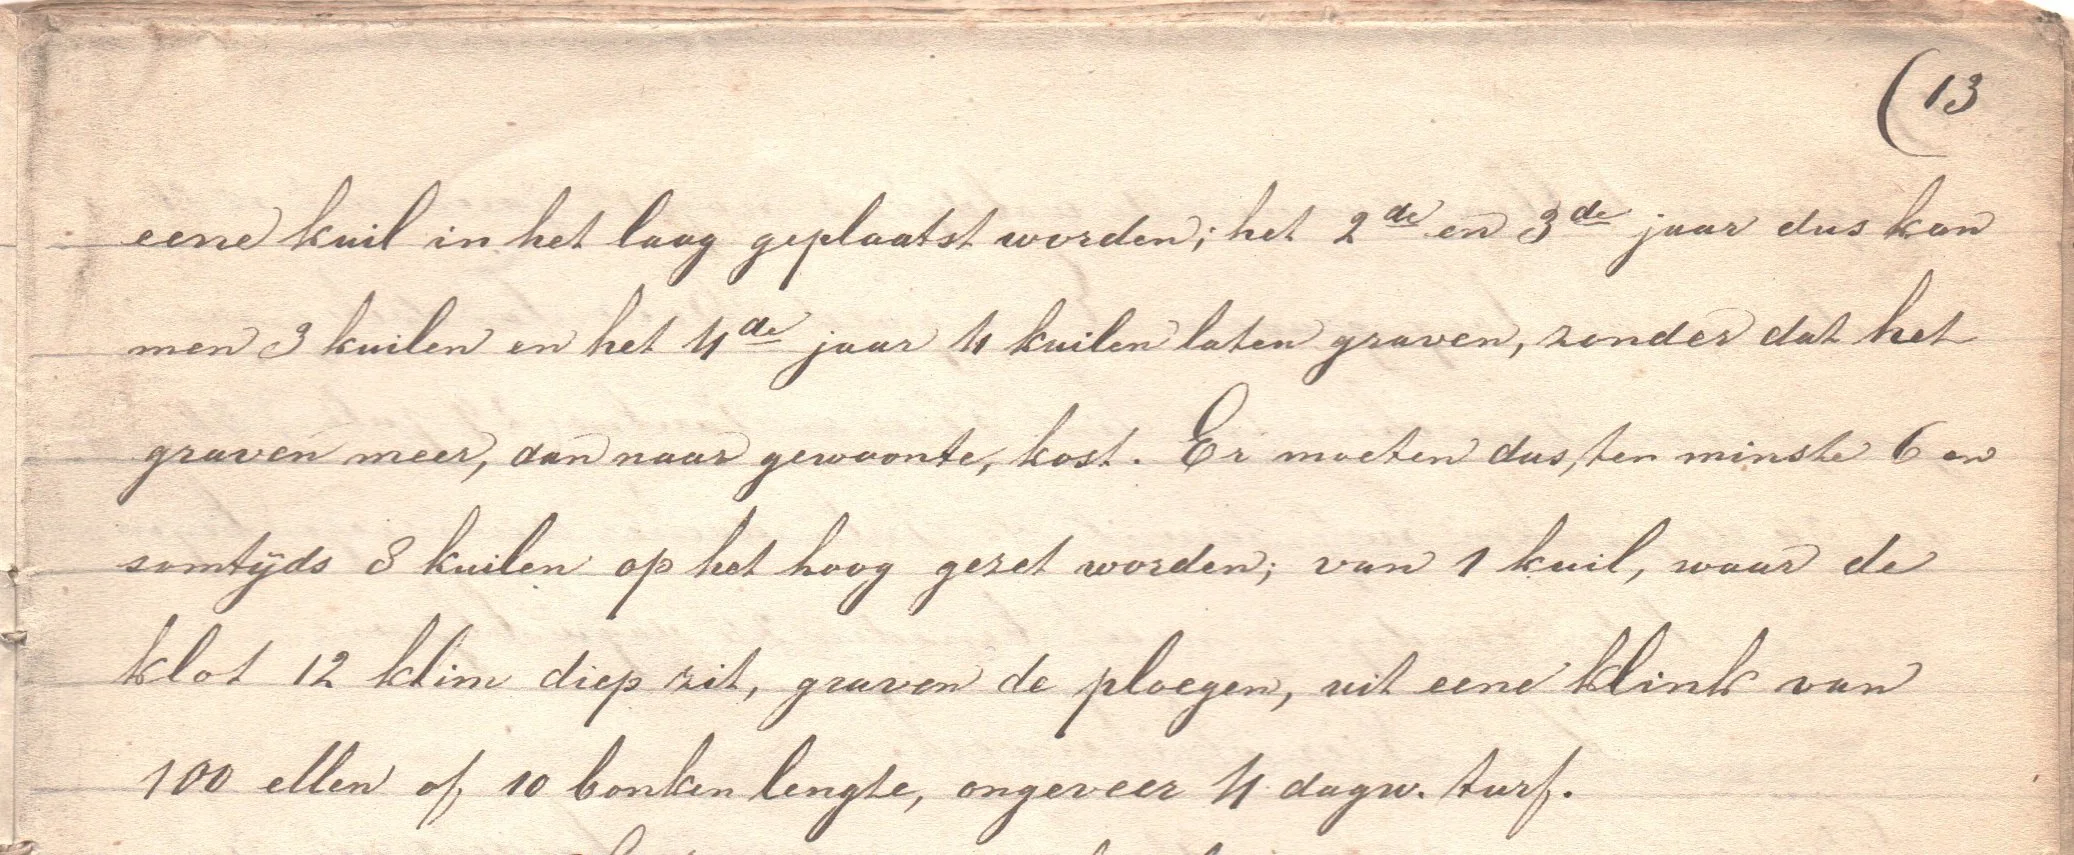 (13
eene kuil in het laag geplaatst worden; het 2de en 3de jaar dus kan
men 3 kuilen en het 4de jaar 4 kuilen laten graven, zonder dat het
graven meer, dan naar gewoonte, kost. Er moeten dus, ten minste 6 en
somtijds 8 kuilen op het hoog gezet worden; van 1 kuil, waar de
klot 12 klim diep zit, graven de ploegen, uit eene klink van
100 ellen of 10 bonken lengte, ongeveer 4 dagw. turf.